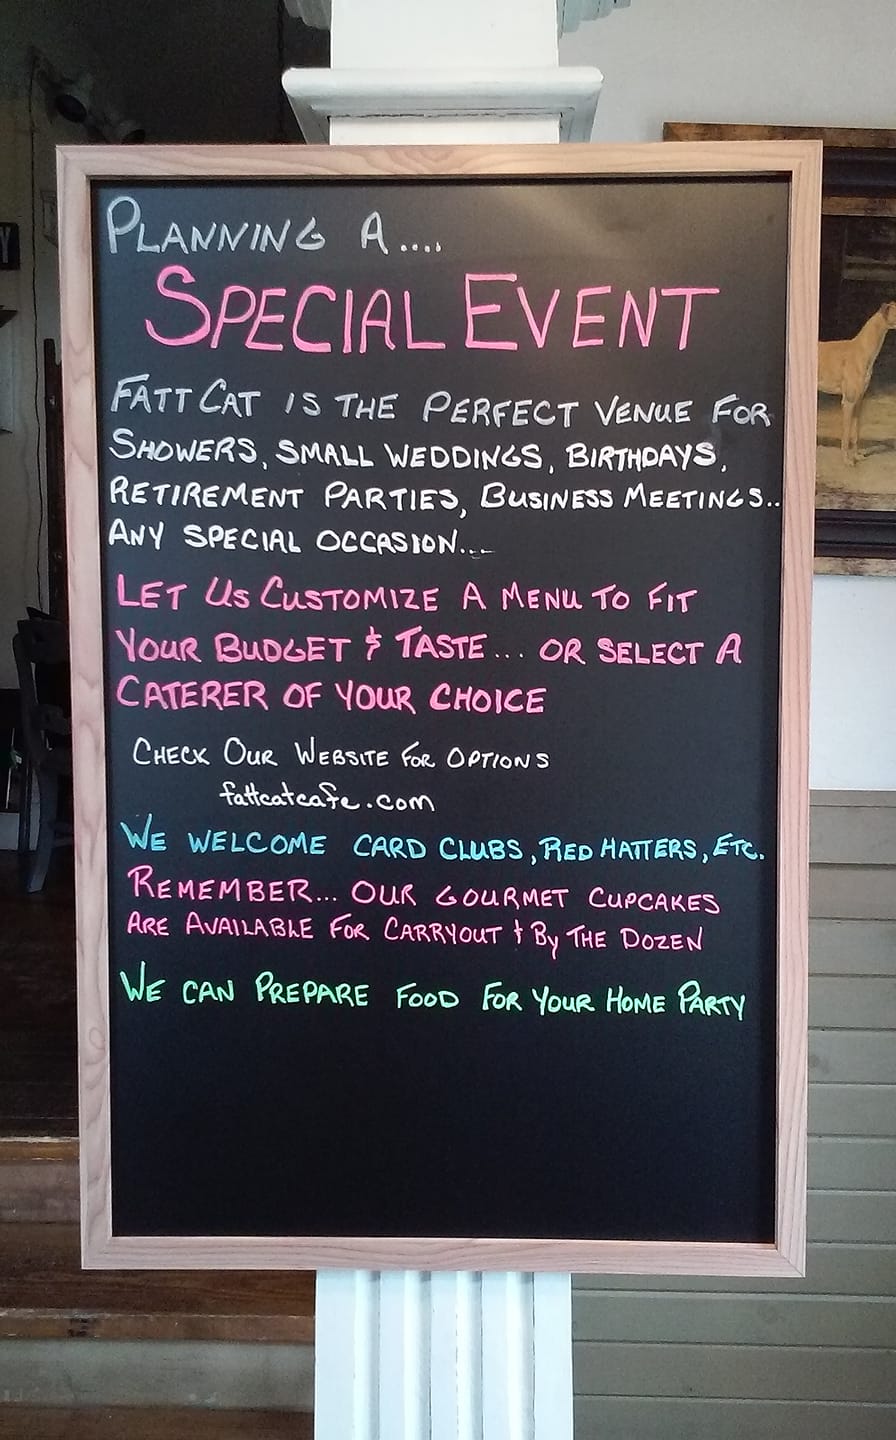 PLANNING A....
SPECIAL EVENT
FATT CAT IS THE PERFECT VENUE FOR
SHOWERS, SMALL WEDDINGS, BIRTHDAYS,
RETIREMENT PARTIES, BUSINESS MEETINGS..
ANY SPECIAL OCCASION...
LET US CUSTOMIZE A MENU TO FIT
YOUR BUDGET & TASTE... OR SELECT A
CATERER OF YOUR CHOICE
CHECK OUR WEBSITE FOR OPTIONS
fattcatcafe.com
WE WELCOME CARD CLUBS, RED HATTERS, ETC.
REMEMBER... OUR GOURMET CUPCAKES
ARE AVAILABLE FOR CARRYOUT & By THE DOZEN
WE CAN PREPARE FOOD FOR YOUR HOME PARTY